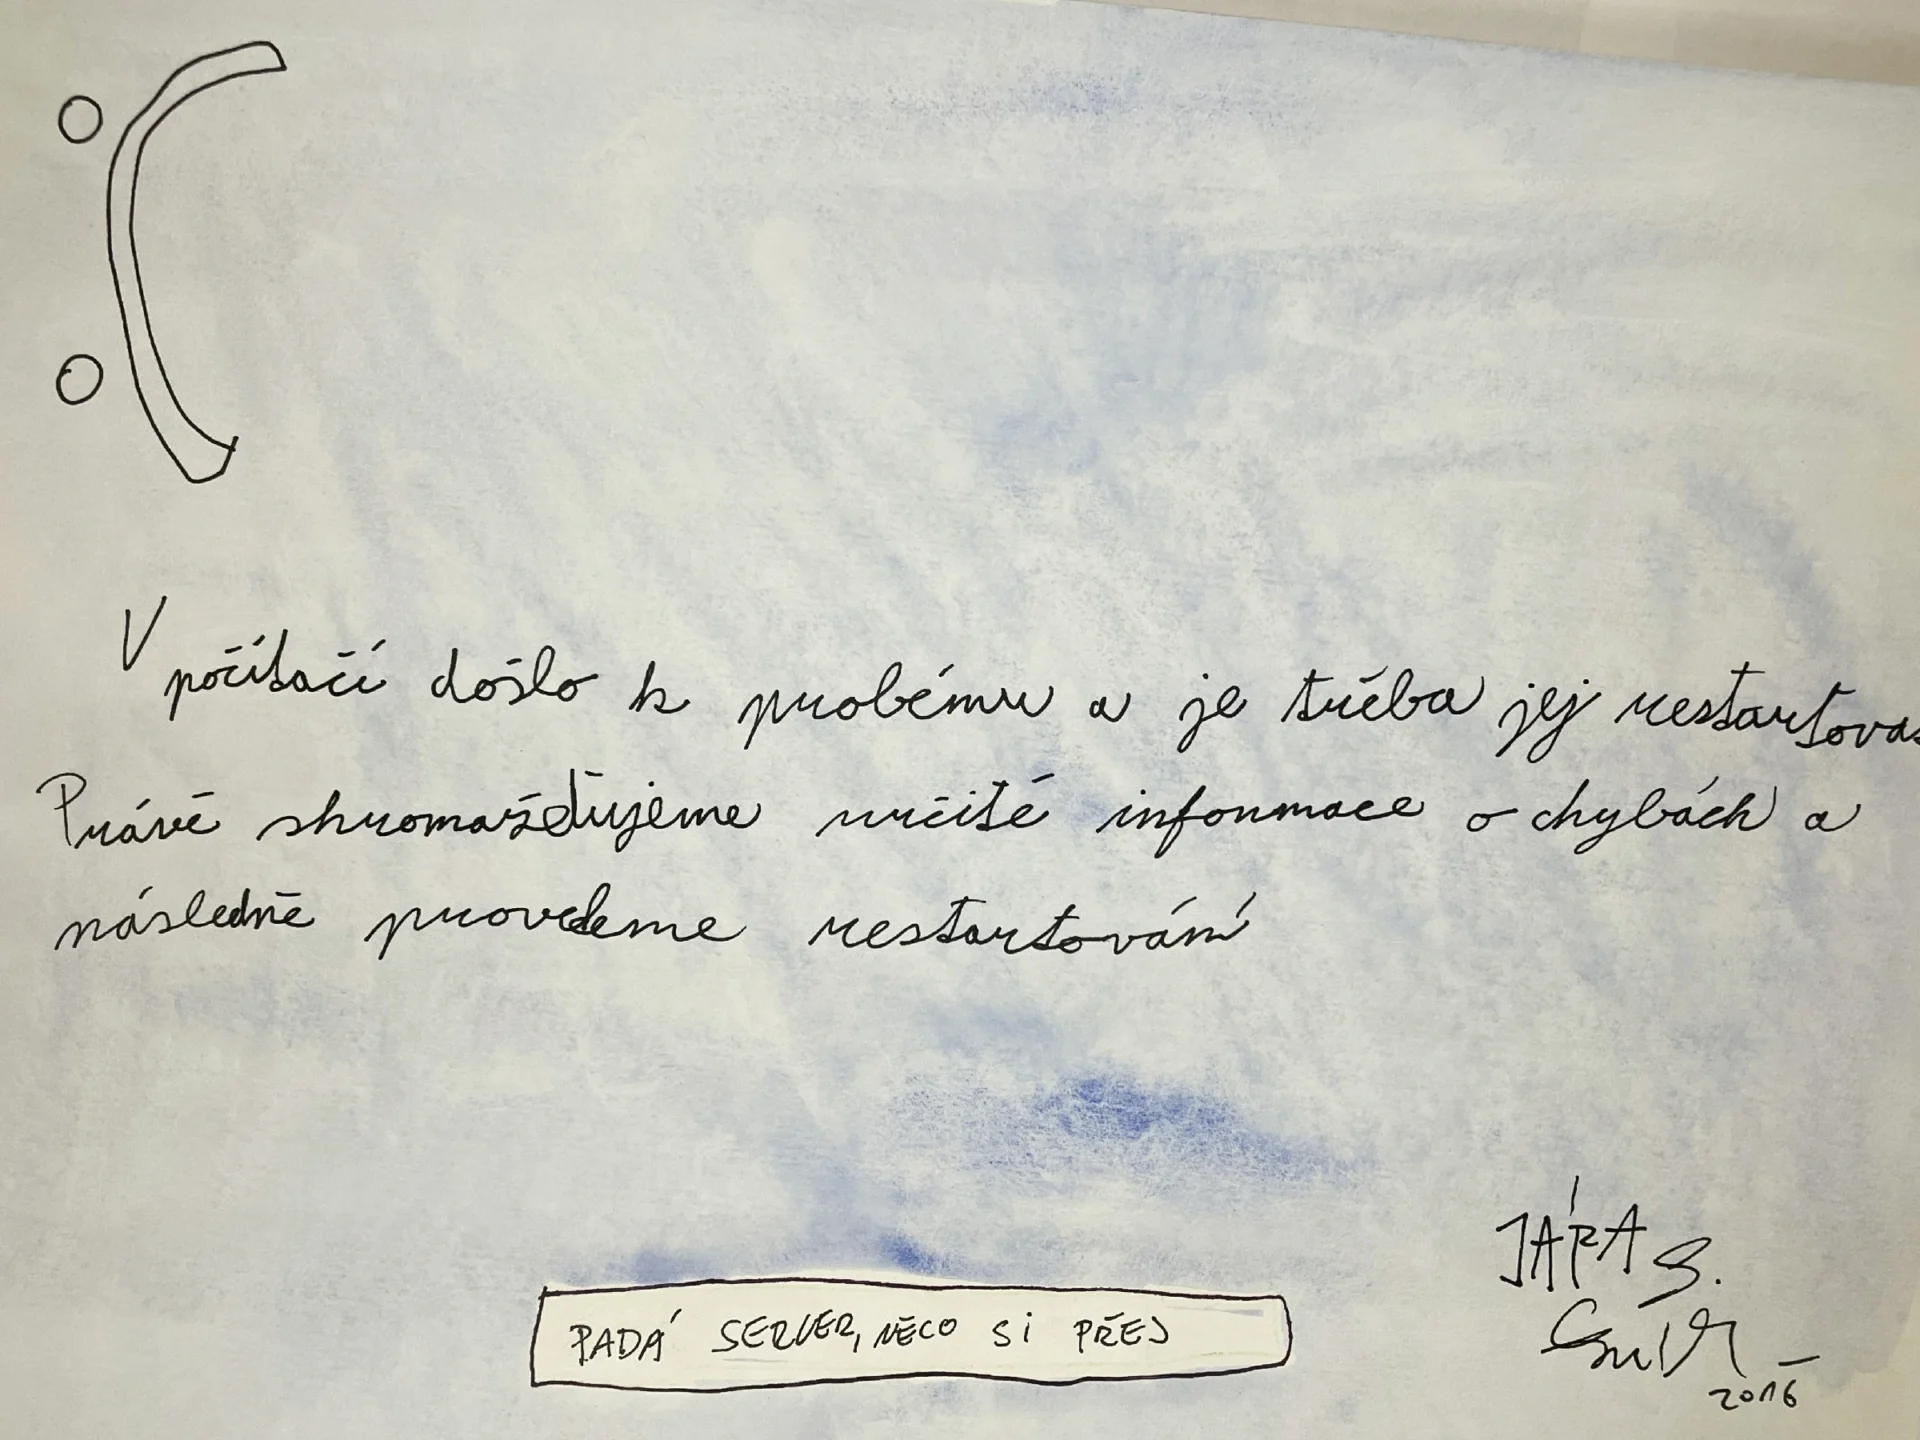 :(
V počítačí došlo k probému a je třeba jej restartova
Právě shromažďujeme určité informace o chybách a
následně provedeme restartování
PADÁ SERVER, NĚCO SI PŘEJ
JÁRA S.
2016